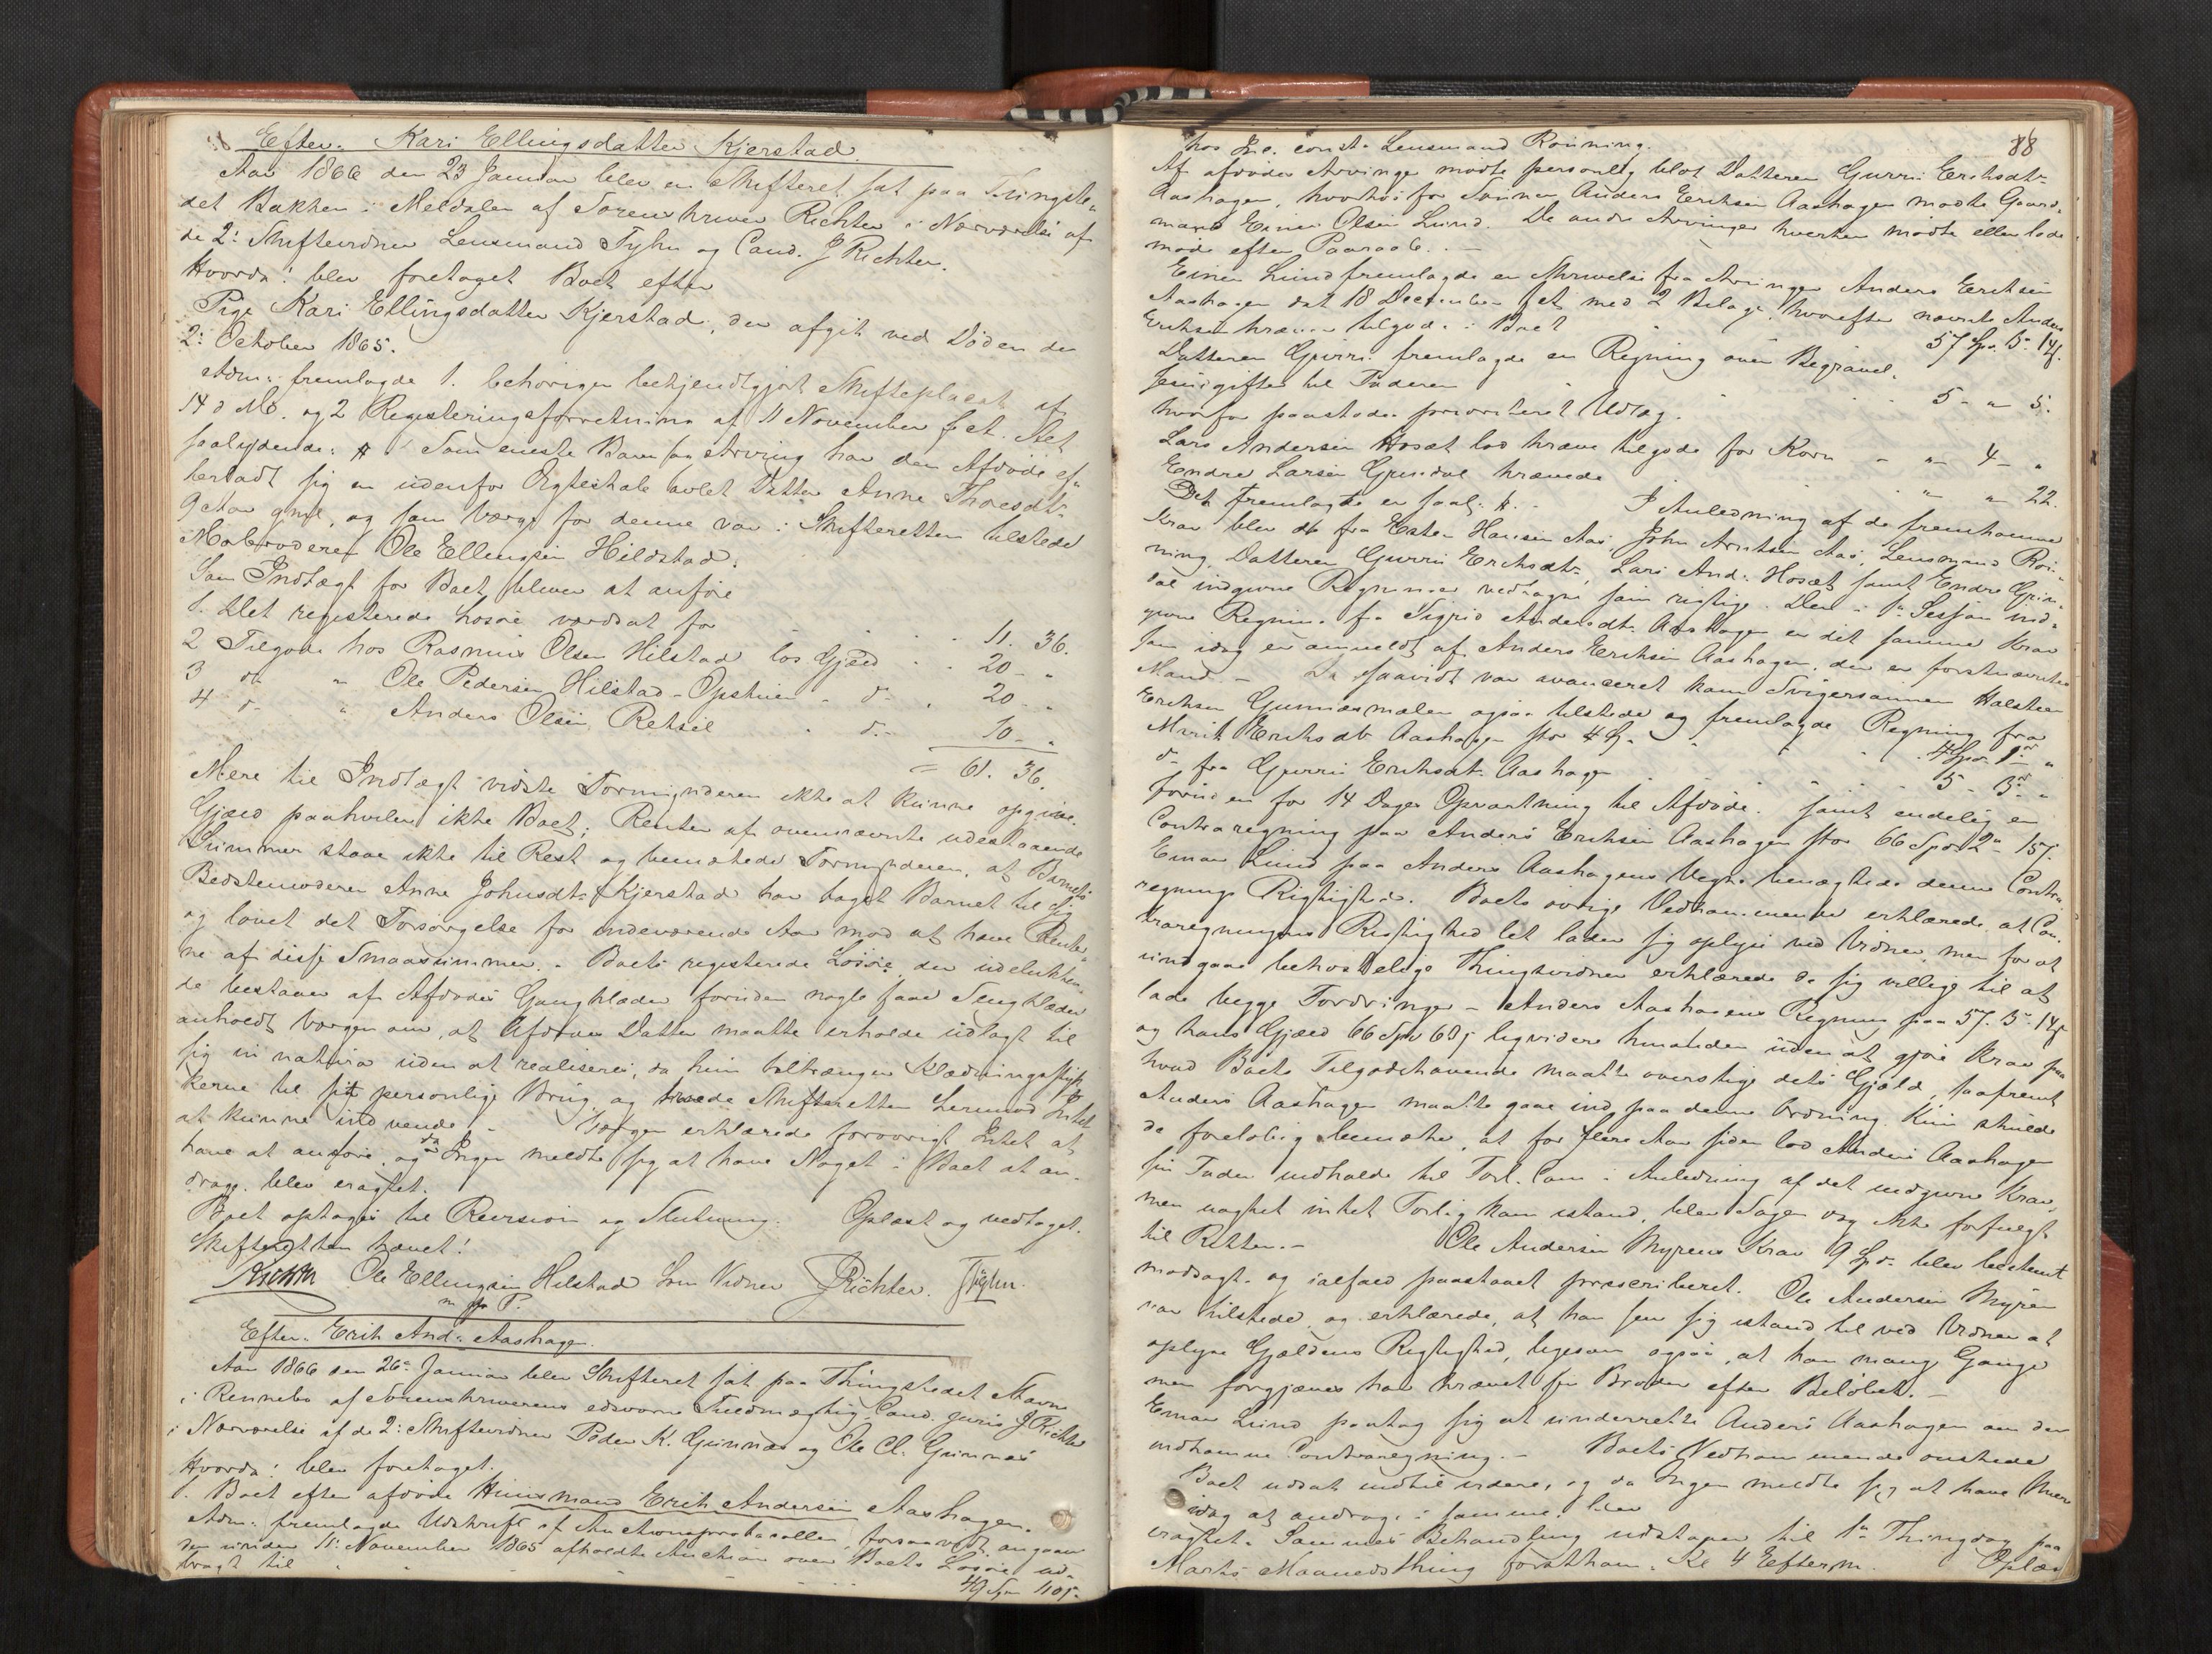 Efter Kari Ellingsdatter Kjerstad.
Aar 1866 den 23 Januar blev en Skifteret sat paa Tingste-
det Bakken i Meldalen af Sorenskriver Richter i Nærværelse af
de 2: Skiftevidner Lensmand Tyhn og Cand. J Richter.
Hvorda! blev foretaget Boet efter
Pige Kari Ellingsdatter Kjerstad, der afgik ved Døden den
2: October 1865.
Adm: fremlagde 1. behørigen bekjendtgjort Skifteplacat af
14 d M. og 2 Registeringsforretning af 11 November f. A.
saalydende: Som eneste Barn og Arving har den Afdøde ef-
terladt sig en udenfor Ægteskab avlet Datter Anne Thoresdt:
9 Aar gml, og som Værge for denne var i Skifteretten tilstede
Morbroderen Ole Ellingsen Hildstad.
Som Indtægt for Boet bliver at anføre
1. Det registerede Løsøre værdsat for 11. 36.
2 Tilgode hos Rasmus Olsen Hilstad løs Gjæld 20 - "
3 do " Ole Pedersen Hilstad-Opstuen - d- 20 - "
4 d- " Anders Olsen Retsil d.- 10 - "
= 61. 36.
Mere til Indtægt vidste Formynderen ikke at kunne opgive.
Gjæld paahviler ikke Boet; Renter af ovennævnte udestaaende
Summer staae ikke til Rest og bemærkede Formynderen, at Barnets
Bedstemoder Anne Johnsdt: Kjerstad har taget Barnet til sig
og lovet det Forsørgelse for indeværende Aar mod at have Renter-
ne af disse Smaasummer. - Boets registerede Løsøre, der udelukken-
de bestaaer af Afdødes Gangklæder foruden nogle faae Sengklæder
anholdt Værgen om, at Afdødes Datter maatte erholde udlagt til
sig in natura uden at realiseres, da hun tiltrænger Klædningsstyk-
kerne til sit personlige Brug, og havde Skifteretten herimod Intet
at kunne indvende. - Værgen erklærede forøvrigt Intet at
have at anføre, og da Ingen meldte sig at have Noget i Boet at an-
drage, blev eragtet.
Boet optages til Revision og Slutning. Oplæst og vedtaget.
Skifteretten hævet!
Richter Ole Ellingsen Hilstad Som Vidner J Richter. Tyhn.
m. p. P.
Efter Erik And: Aashagen.
Aar 1866 den 26: Januar blev Skifteret sat paa Thingstedet Stavne
i Rennebo af Sorenskriverens edsvorne Fuldmægtig Cand. juris J Richter
i Nærværelse af de 2: Skiftevidner Peder K. Gunnes og Ole Cl. Gunnes
Hvorda! blev foretaget.
1. Boet efter afdøde Huusmand Erik Andersen Aashagen.
Adm: fremlagde Udskrift af Auctionsprotocollen, forsaavidt angaar
den under 11: November 1865 afholdte Auction over Boets Løsøre ud-
bragt til 49 Spd 110 s.
88
hos const. Lensmand Rønning.
Af afdødes Arvinger mødte personlig blot Datteren Gurri Eriksdt:
Aashagen, hvorhos for Sønnen Anders Eriksen Aashagen mødte Gaard-
mand Einar Olsen Lund. De andre Arvinger hverken mødte eller lode
møde efter Paaraab. -
Einar Lund fremlagde en Skrivelse fra Arvingen Anders Eriksen
Aashagen dat 18 December f. A. med 2 Bilage, hvorefter nævnte Anders
Eriksen kræver tilgode i Boet 57 Sp. 3: 14 s.
Datteren Gurri fremlagde en Regning over Begravel-
sesudgifter til Faderen 5 - " 5.
hvorfor paastodes prioriteret Udlæg.
Lars Andersen Hosæt lod kræve tilgode for Korn - " 4 - "
Endre Larsen Grindal krævede " " 22.
Det fremlagte er saal: I Anledning af de fremkomne
Krav blev de fra Esten Hansen Aas, John Arntsen Aas, Lensmand Røn-
ning, Datteren Gurri Eriksdt:, Lars And: Hosæt samt Endre Grin-
dal indgivne Regninger vedtagne som rigtige. Den i 1: Session ind-
givne Regning fra Sigrid Andersdt: Aashagen er det samme Krav
som idag er anmeldt af Anders Eriksen Aashagen, der er førstnævntes
Mand. - Da saavidt var avanceret kom Svigersønnen Halsteen
Eriksen Gunnesmælen ogsaa tilstede og fremlagde Regning fra
Marit Eriksdt Aashagen 4 Spd. 1 "
d- fra Gurri Eriksdt: Aashagen 5 - 3 "
foruden for 14 Dages Opvartning til Afdøde. samt endelig en
Contraregning paa Anders Eriksen Aashagen stor 66 Spd 2: 15 s.
Einar Lund paa Anders Aashagens Vegne benægtede denne Contra-
regnings Rigtighed. Boets øvrige Vedkommende erklærede, at Con-
traregningens Rigtighed let lader sig oplyse ved Vidner, men for at
undgaae bekostelige Thingsvidner erklærede de sig villige til at
lade begge Fordringer - Anders Aashagens Regning paa 57. 3: 14 s
og hans Gjæld 66 Spd 60 s liqvidere hinanden uden at gjøre Krav paa
hvad Boets Tilgodehavende maatte overstige dets Gjæld, saafremt
Anders Aashagen maatte gaae ind paa denne Ordning. Kun skulde
de foreløbig bemærke, at for flere Aar siden lod Anders Aashagen
sin Fader indkalde til Forl. Com: i Anledning af det indgivne Krav,
men uagtet intet Forlig kom istand, blev Sagen dog ikke forfulgt
til Retten. - Ole Andersen Myrens Krav 9 Spd. blev bestemt
modsagt og ialfald paastaaet præscriberet. Ole Andersen Myren
var tilstede og erklærede, at han saa sig istand til ved Vidner at
oplyse Gjældens Rigtighed, ligesom ogsaa, at han mange Gange
men forgjæves har krævet sin Broder efter Beløbet. -
Einar Lund paatog sig at underrette Anders Aashagen om den
indkomne Contraregning. - Boets Vedkommende ønskede
Boet udsat indtil videre, og da Ingen meldte sig at have Mere
idag at andrage i samme, blev
eragtet. Sammes Behandling udstaaer til 1: Thingdag paa
Marts Maanedsthing førstkom. Kl 4 Efterm. Oplæst